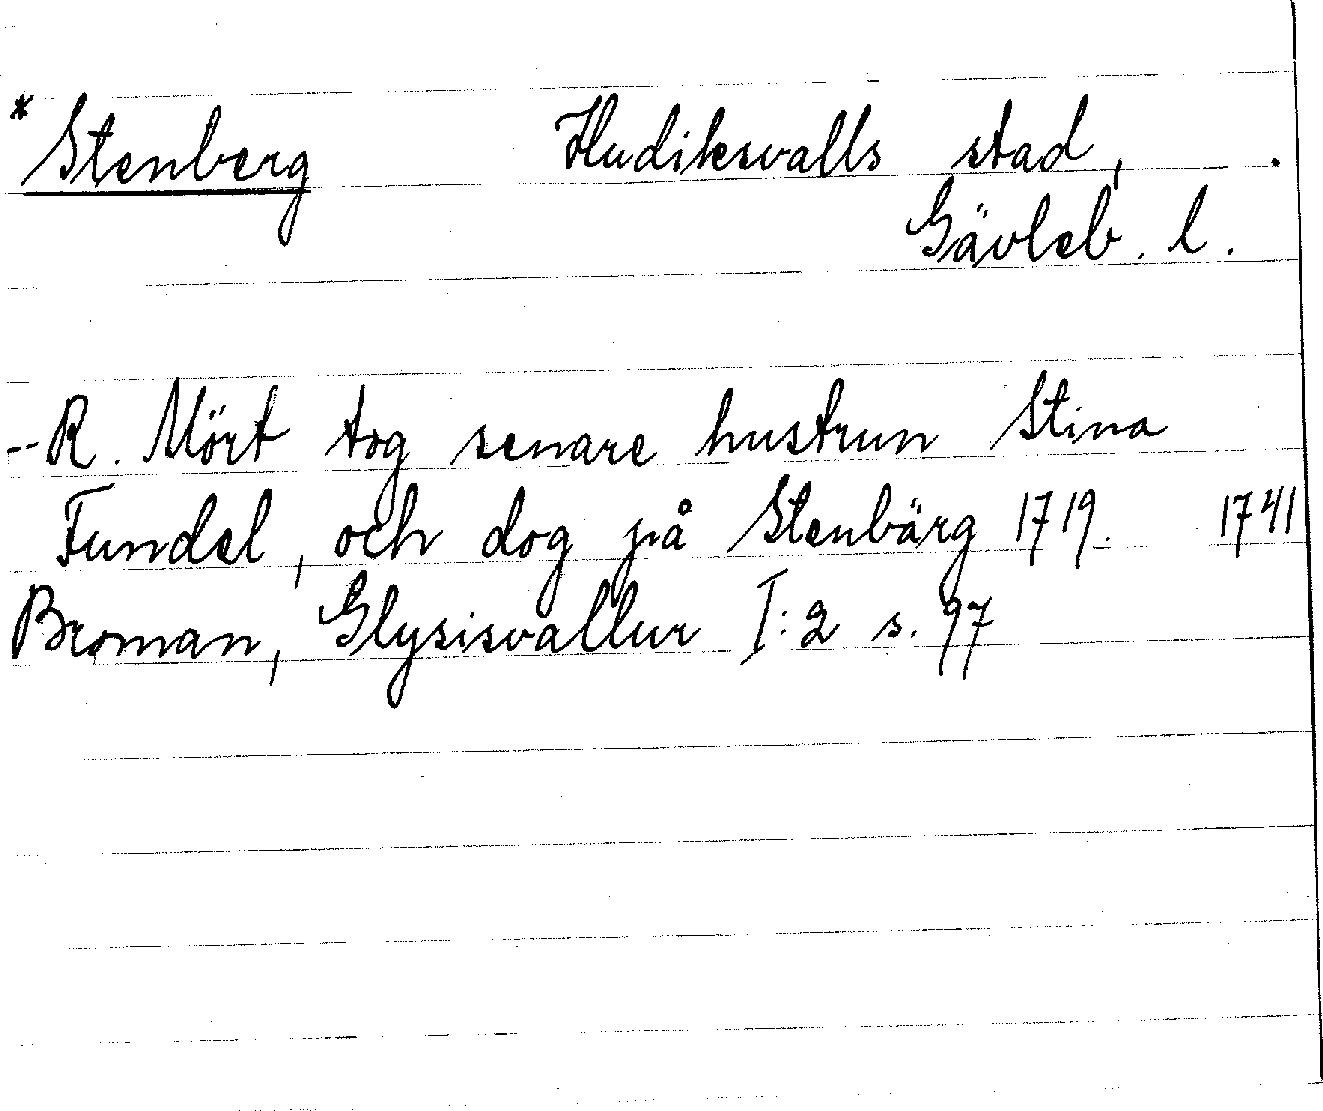 *Stenberg Hudiksvalls stad,
Gävleb. l.
--R. Mört tog senare hustrun Stina
Fundel, och dog på Stenbärg 1719. 1741
Broman, Glysisvallur I:2 s. 97